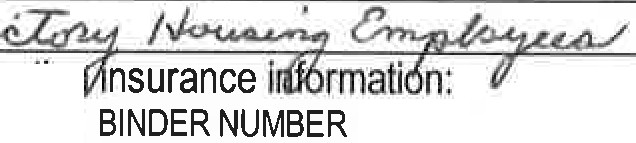 ctory Housing Employees
insurance information:
BINDER NUMBER